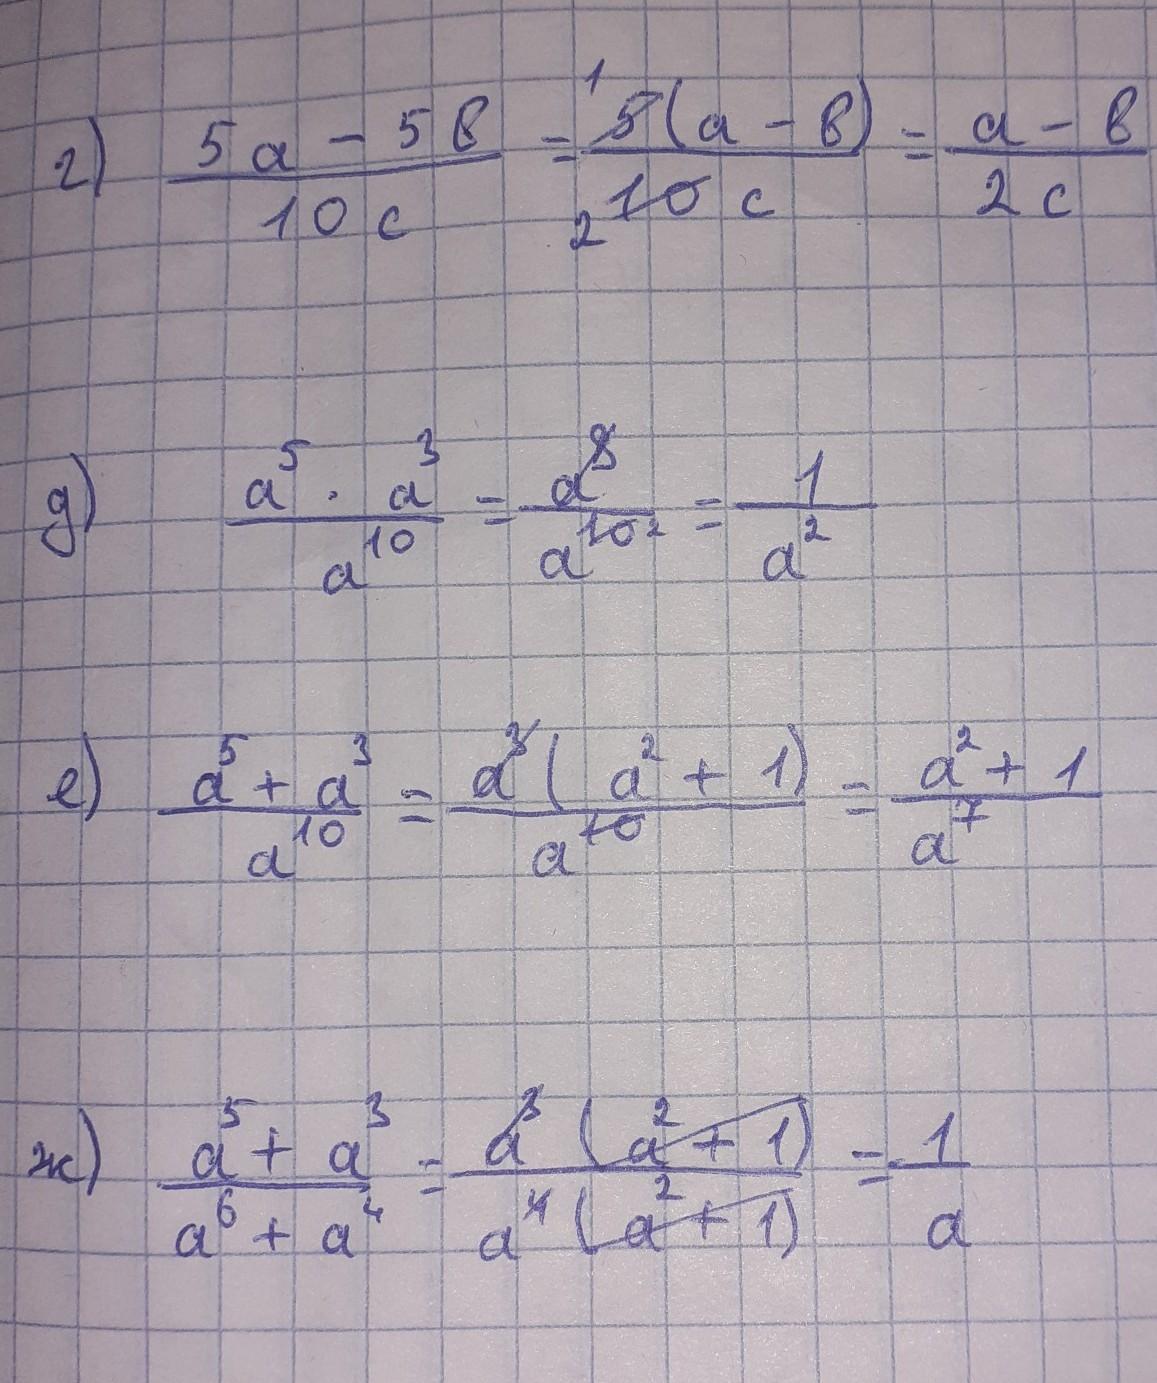 г) (5a - 5b)/(10c) = (5(a - b))/(10c) = (a - b)/(2c)
д) (a⁵ · a³)/a¹⁰ = a⁸/a¹⁰ = 1/a²
е) (a⁵ + a³)/a¹⁰ = (a³(a² + 1))/a¹⁰ = (a² + 1)/a⁷
ж) (a⁵ + a³)/(a⁶ + a⁴) = (a³(a² + 1))/(a⁴(a² + 1)) = 1/a